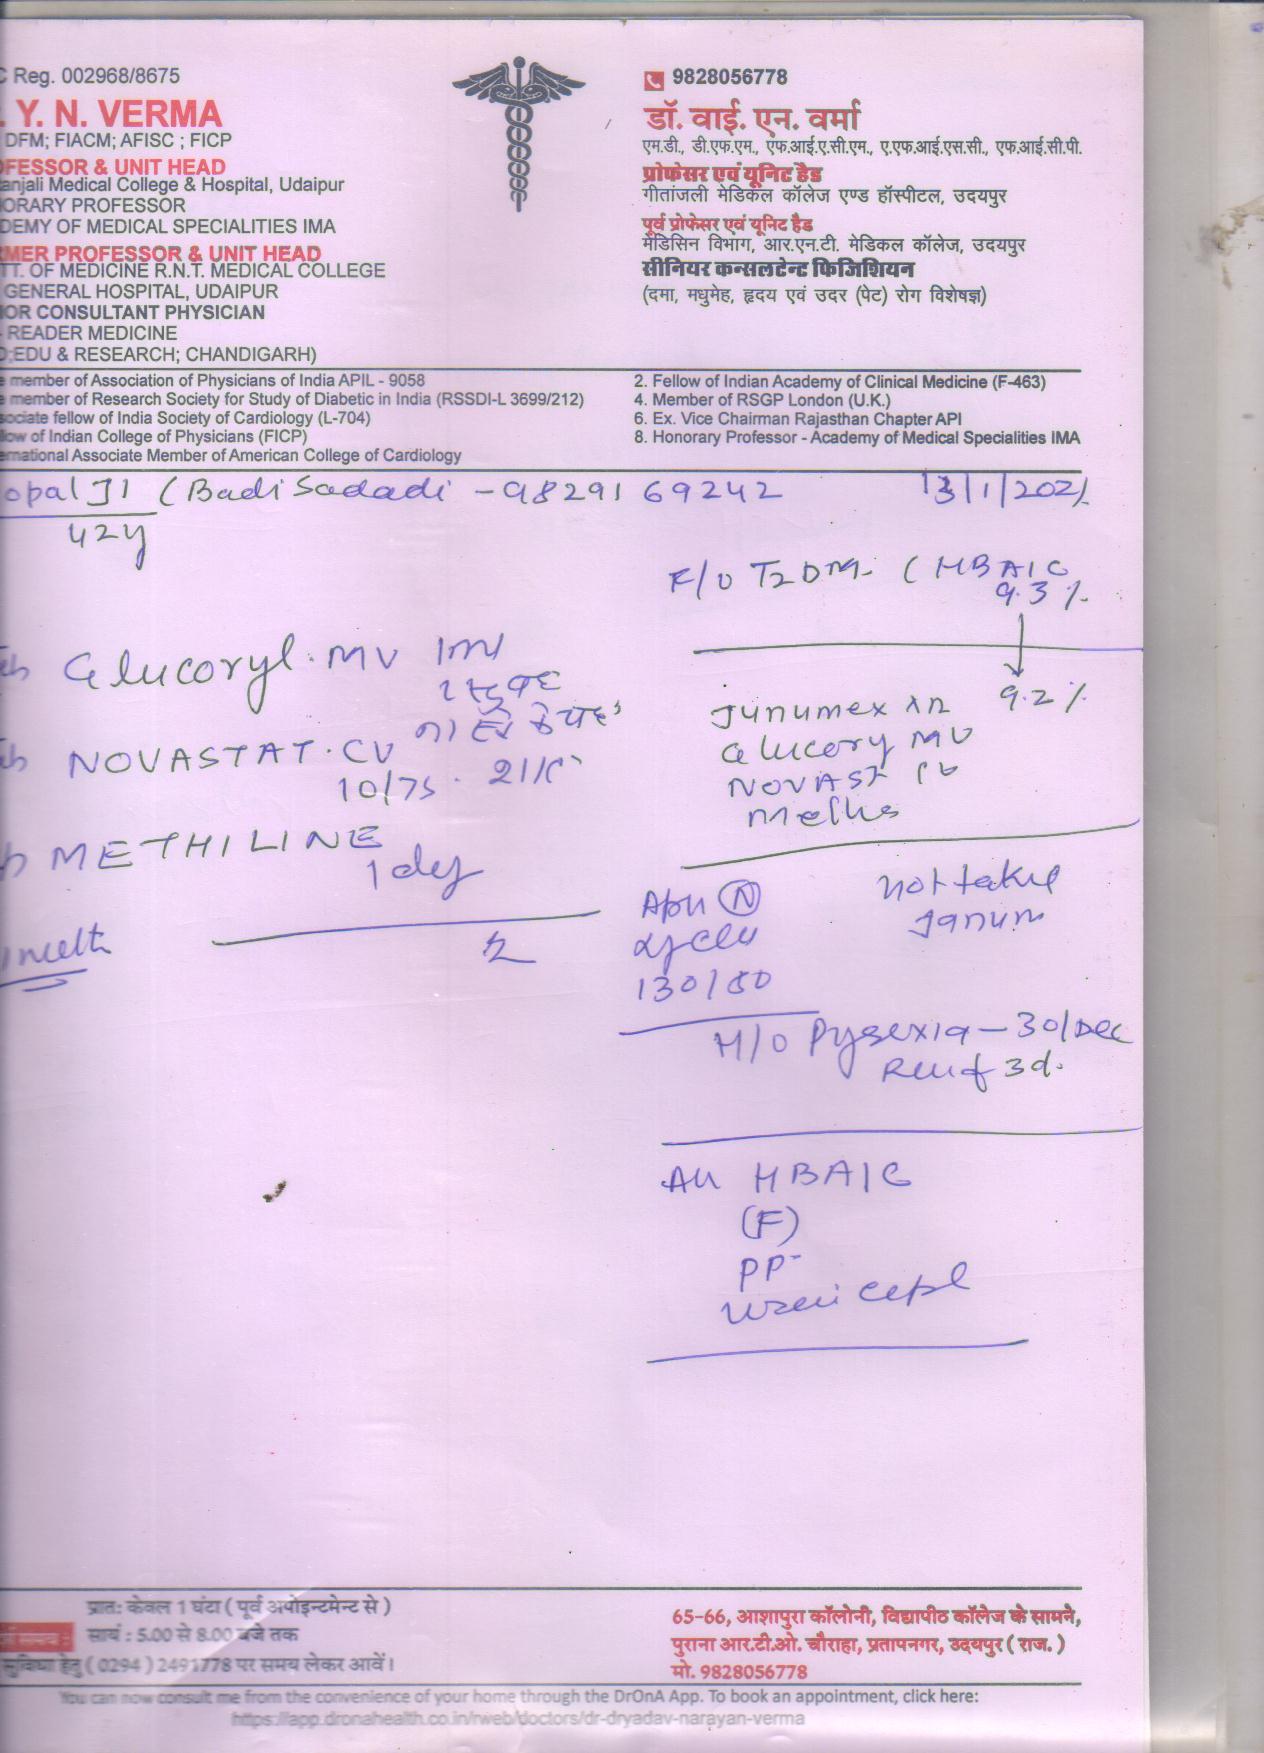 C Reg. 002968/8675
. Y. N. VERMA
DFM; FIACM; AFISC ; FICP
OFESSOR & UNIT HEAD
anjali Medical College & Hospital, Udaipur
ORARY PROFESSOR
DEMY OF MEDICAL SPECIALITIES IMA
MER PROFESSOR & UNIT HEAD
TT. OF MEDICINE R.N.T. MEDICAL COLLEGE
GENERAL HOSPITAL, UDAIPUR
OR CONSULTANT PHYSICIAN
READER MEDICINE
D;EDU & RESEARCH; CHANDIGARH)
9828056778
डॉ. वाई. एन. वर्मा
एम.डी., डी.एफ.एम., एफ.आई.ए.सी.एम., ए.एफ.आई.एस.सी., एफ.आई.सी.पी.
प्रोफेसर एवं यूनिट हैड
गीतांजली मेडिकल कॉलेज एण्ड हॉस्पीटल, उदयपुर
पूर्व प्रोफेसर एवं यूनिट हैड
मेडिसिन विभाग, आर.एन.टी. मेडिकल कॉलेज, उदयपुर
सीनियर कन्सलटेन्ट फिजिशियन
(दमा, मधुमेह, हृदय एवं उदर (पेट) रोग विशेषज्ञ)
e member of Association of Physicians of India APIL - 9058
e member of Research Society for Study of Diabetic in India (RSSDI-L 3699/212)
sociate fellow of India Society of Cardiology (L-704)
llow of Indian College of Physicians (FICP)
ernational Associate Member of American College of Cardiology
2. Fellow of Indian Academy of Clinical Medicine (F-463)
4. Member of RSGP London (U.K.)
6. Ex. Vice Chairman Rajasthan Chapter API
8. Honorary Professor - Academy of Medical Specialities IMA
opal JI (Badi Sadadi - 98291 69242 13/1/2021
42y
F/O T2DM (HBA1C
9.3 %
9.2 %
Glucoryl. MV
NOVASTAT. CV
10/75
METHILINE
1 daily
Janumex XR
Glucory MV
NOVAST CV
not take
Janum
130/80
H/O Pyrexia - 30/Dec
Relief 3d.
HBA1C
(F)
PP
प्रातः केवल 1 घंटा ( पूर्व अपोइन्टमेन्ट से )
सायं : 5.00 से 8.00 बजे तक
सुविधा हेतु ( 0294 ) 2491778 पर समय लेकर आवें।
65-66, आशापुरा कॉलोनी, विद्यापीठ कॉलेज के सामने,
पुराना आर.टी.ओ. चौराहा, प्रतापनगर, उदयपुर ( राज. )
मो. 9828056778
You can now consult me from the convenience of your home through the DrOnA App. To book an appointment, click here:
https://app.dronahealth.co.in/rweb/doctors/dr-dryadav-narayan-verma